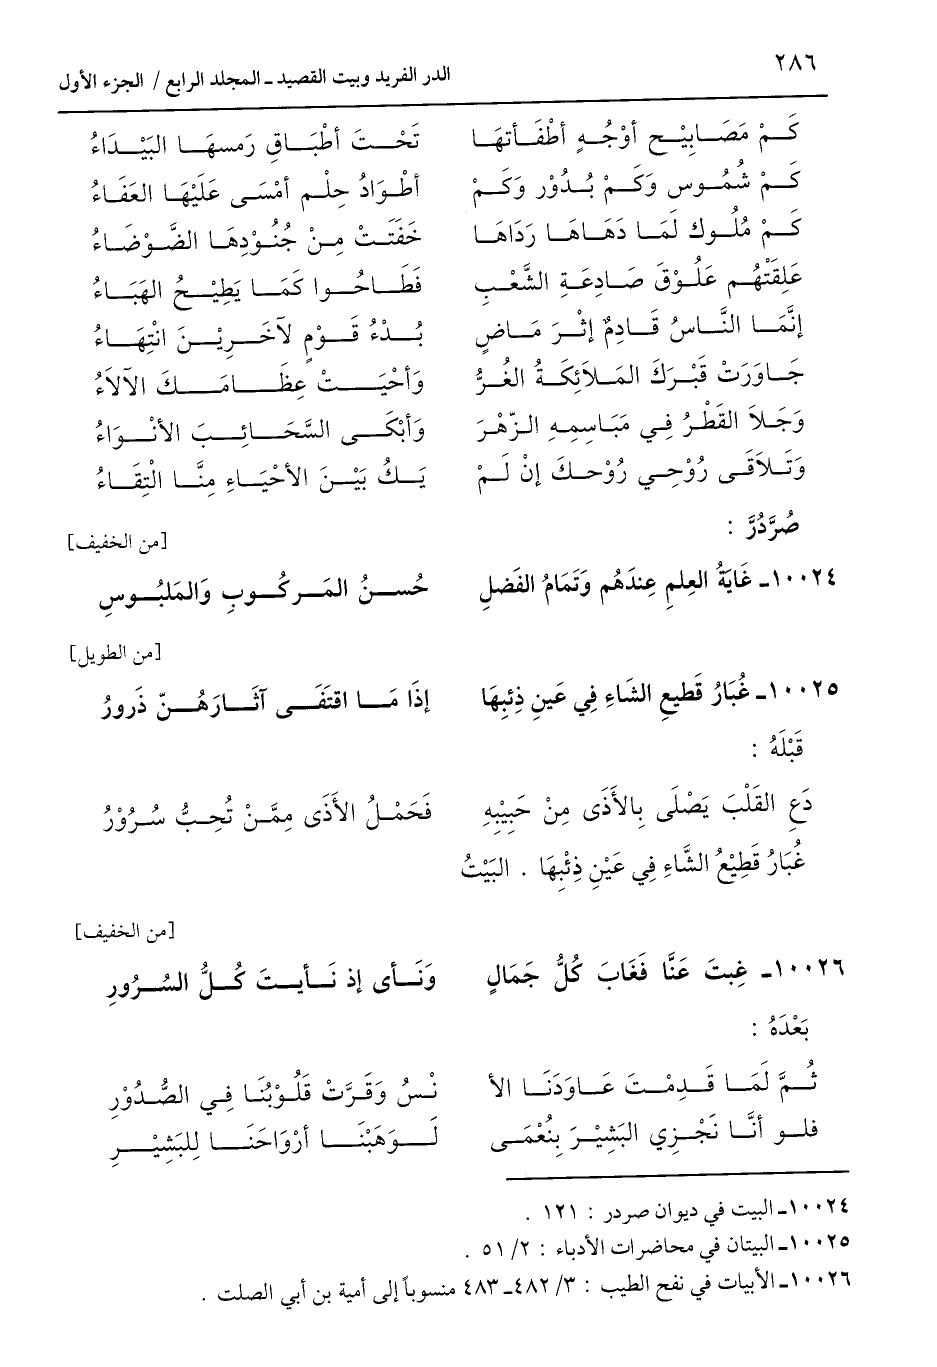 ٢٨٦
الدر الفريد وبيت القصيد ـ المجلد الرابع / الجزء الأول
كَمْ مَصَابِيْحِ أوْجُهٍ أطْفَأتهَا تَحْتَ أطْبَاقِ رَمسِهَا البَيْدَاءُ
كَمْ شُمُوسٍ وَكَمْ بُدُوْرٍ وَكَمْ أطْوَادُ حِلْمٍ أمْسَى عَلَيْهَا العَفَاءُ
كَمْ مُلُوك لَمَا دَهَاهَا رَدَاهَا خَفَتَتْ مِنْ جُنُوْدِهَا الضَّوْضَاءُ
عَلِقَتْهُم عَلُوْقَ صَادِعَةِ الشَّعْبِ فَطَاحُوا كَمَا يَطِيْحُ الهَبَاءُ
إنَّمَا النَّاسُ قَادِمٌ إثْرَ مَاضٍ بُدْءُ قَوْمٍ لآخَرِيْنَ انْتِهَاءُ
جَاوَرَتْ قَبْرَكَ المَلَائِكَةُ الغُرُّ وَأحْيَتْ عِظَامَكَ الآلاَءُ
وَجَلاَ القَطْرُ فِي مَبَاسِمِهِ الزّهْرَ وَأبْكَى السَّحَائِبَ الأنْوَاءُ
وَتَلاَقَى رُوْحِي رُوْحكَ إنْ لَمْ يَكُ بَيْنَ الأحْيَاءِ مِنَّا الْتِقَاءُ
صُرَّدُرَّ :
[من الخفيف]
١٠٠٢٤ـ غَايَةُ العِلمِ عِندَهُم وَتَمَامُ الفَضلِ حُسنُ المَركُوبِ وَالمَلبُوسِ
[من الطويل]
١٠٠٢٥ـ غُبَارُ قَطيعِ الشَاءِ فِي عَينِ ذِئبِهَا إذَا مَا اقتَفَى آثَارَهُنّ ذَرورُ
قَبْلَهُ :
دَعِ القَلْبَ يَصْلَى بِالأذَى مِنْ حَبِيْبِهِ فَحَمْلُ الأذَى مِمَّنْ تُحِبُّ سُرُوْرُ
غُبَارُ قَطِيْعُ الشَّاءِ فِي عَيْنِ ذِئْبِهَا . البَيْتُ
[من الخفيف]
١٠٠٢٦ـ غِبتَ عَنَّا فَغَابَ كُلُّ جَمَالٍ وَنَأى إذ نَأيتَ كُلُّ السُرُورِ
بَعْدَهُ :
ثُمَّ لَمَا قَدِمْتَ عَاوَدَنَا الأ نْسُ وَقَرَّتْ قُلُوْبُنَا فِي الصُّدُوْرِ
فلو أنَّا نَجْزِي البَشِيْرَ بِنُعْمَى لَوَهَبْنَا أرْوَاحَنَا لِلبَشِيْرِ
١٠٠٢٤ـ البيت في ديوان صردر : ١٢١ .
١٠٠٢٥ـ البيتان في محاضرات الأدباء : ٢/ ٥١ .
١٠٠٢٦ـ الأبيات في نفح الطيب : ٣/ ٤٨٢ـ ٤٨٣ منسوباً إلى أمية بن أبي الصلت .